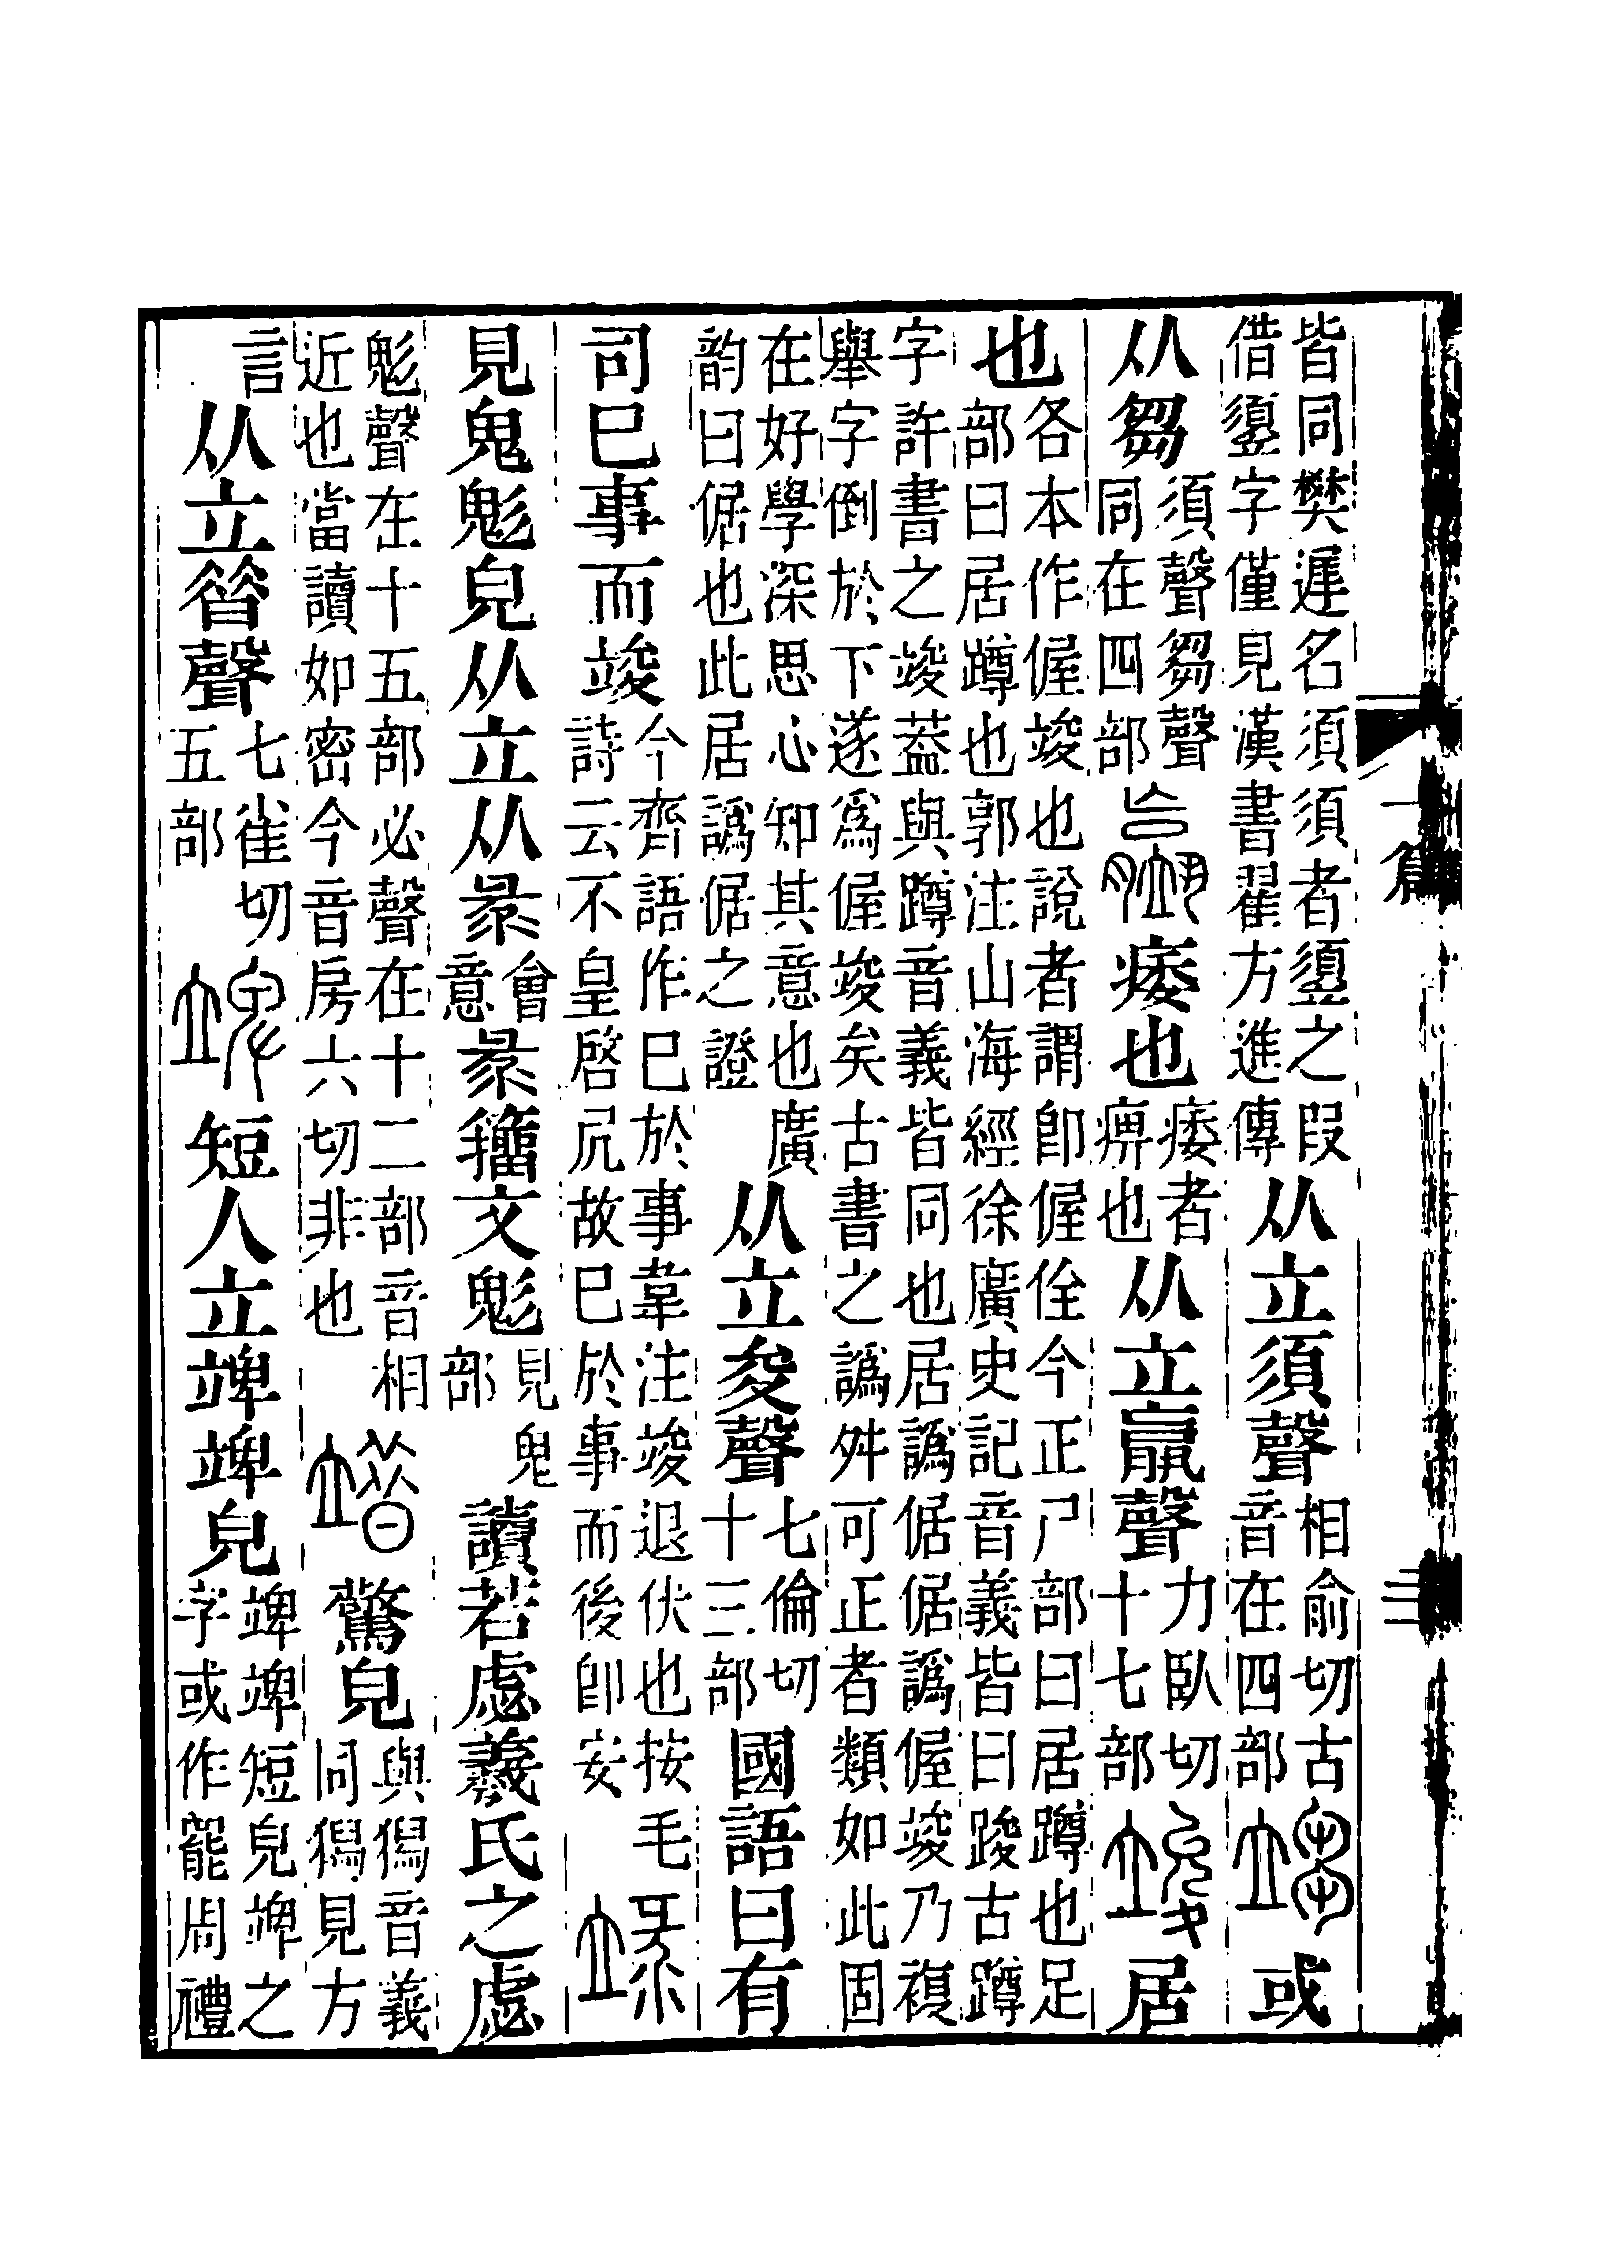 皆同樊遲名須須者䇓之叚借䇓字僅見漢書翟方進傳从立須聲相俞切古音在四部䇕或
从芻須聲芻聲同在四部𥪕痿也痿者痹也从立𣎆聲力臥切十七部竣居
也各本作偓竣也說者謂卽偓佺今正尸部曰居蹲也足部曰居蹲也郭注山海經徐廣史記音義皆曰踆古蹲
字許書之竣葢與蹲音義皆同也居譌倨倨譌偓竣乃複舉字倒於下遂爲偓竣矣古書之譌舛可正者類如此固
在好學深思心知其意也廣韵曰倨也此居譌倨之證从立夋聲七倫切十三部國語曰有
司巳事而竣今齊語作巳於事韋注竣退伏也按毛詩云不皇啓尻故巳於事而後卽安䇐
見鬼鬽皃从立从彔會意彔籒文鬽見鬼部讀若虙羲氏之虙
鬽聲在十五部必聲在十二部音相近也當讀如密今音房六切非也䇎驚皃與猲音義同猲見方
言从立㫺聲七雀切五部竨短人立竨竨皃竨竨短皃竨之字或作罷周禮